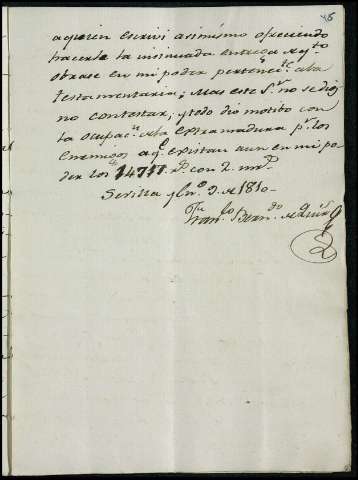 46
aquien escrivi asimismo ofreciendo
hacerle la insinuada entrega de qto
obrase en mi poder pertenecte. ala
testamentaria; Mas este Sr. no se dig
no contestar, y todo dio motibo con
la ocupacn. dela Extremadura pr. los
Enemigos aqe. existan aun en mi po
der los 14717 rs. con 2 mrs.
Sevilla y En.o 9 de 1810-
Franco Bernardo de Quirs